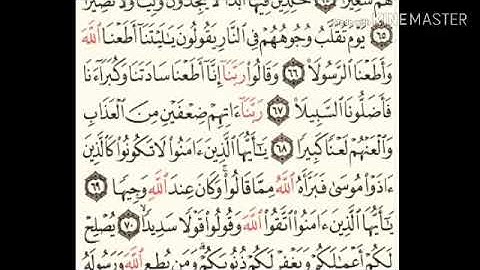 KINEMASTER
هُمْ سَعِيرًا ٦٤ خَٰلِدِينَ فِيهَآ أَبَدًا لَّا يَجِدُونَ وَلِيًّا وَلَا نَصِيرًا
٦٥ يَوْمَ تُقَلَّبُ وُجُوهُهُمْ فِي النَّارِ يَقُولُونَ يَٰلَيْتَنَآ أَطَعْنَا اللَّهَ
وَأَطَعْنَا الرَّسُولَا۠ ٦٦ وَقَالُوا۟ رَبَّنَآ إِنَّآ أَطَعْنَا سَادَتَنَا وَكُبَرَآءَنَا
فَأَضَلُّونَا السَّبِيلَا۠ ٦٧ رَبَّنَآ ءَاتِهِمْ ضِعْفَيْنِ مِنَ الْعَذَابِ
وَالْعَنْهُمْ لَعْنًا كَبِيرًا ٦٨ يَٰٓأَيُّهَا الَّذِينَ ءَامَنُوا۟ لَا تَكُونُوا۟ كَالَّذِينَ
ءَاذَوْا۟ مُوسَىٰ فَبَرَّأَهُ اللَّهُ مِمَّا قَالُوا۟ وَكَانَ عِندَ اللَّهِ وَجِيهًا ٦٩
يَٰٓأَيُّهَا الَّذِينَ ءَامَنُوا۟ اتَّقُوا۟ اللَّهَ وَقُولُوا۟ قَوْلًا سَدِيدًا ٧٠ يُصْلِحْ
لَكُمْ أَعْمَٰلَكُمْ وَيَغْفِرْ لَكُمْ ذُنُوبَكُمْ وَمَن يُطِعِ اللَّهَ وَرَسُولَهُ